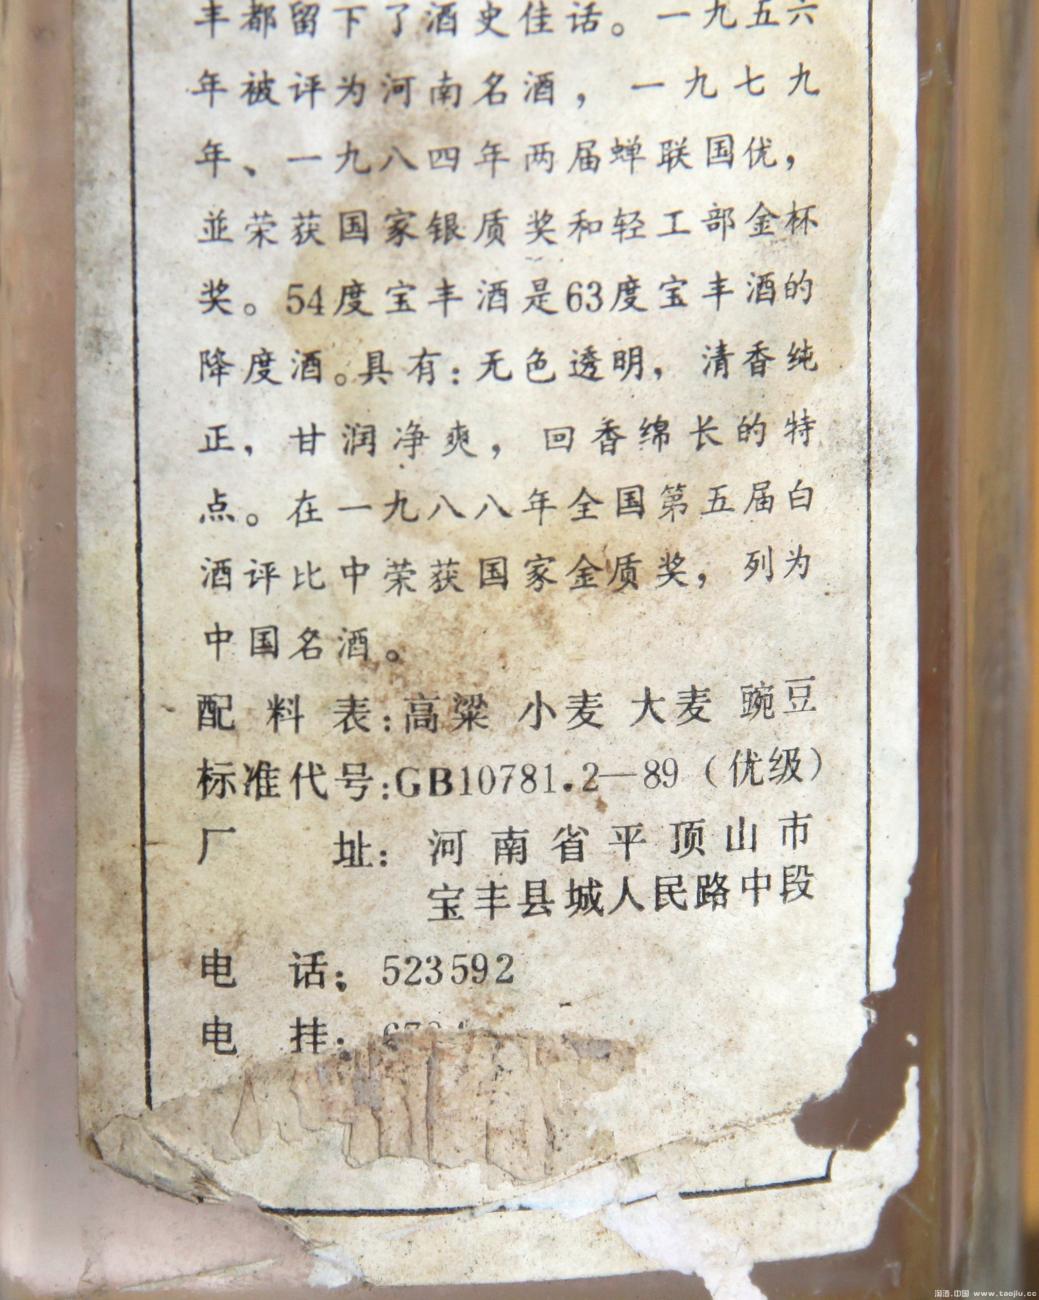 丰都留下了酒史佳话。一九五六
年被评为河南名酒，一九七九
年、一九八四年两届蝉联国优，
並荣获国家银质奖和轻工部金杯
奖。54度宝丰酒是63度宝丰酒的
降度酒。具有：无色透明，清香纯
正，甘润净爽，回香绵长的特
点。在一九八八年全国第五届白
酒评比中荣获国家金质奖，列为
中国名酒。
配料表：高粱 小麦 大麦 豌豆
标准代号：GB10781.2—89（优级）
厂址：河南省平顶山市
宝丰县城人民路中段
电话：523592
电挂：
淘酒.中国 www.taojiu.cc